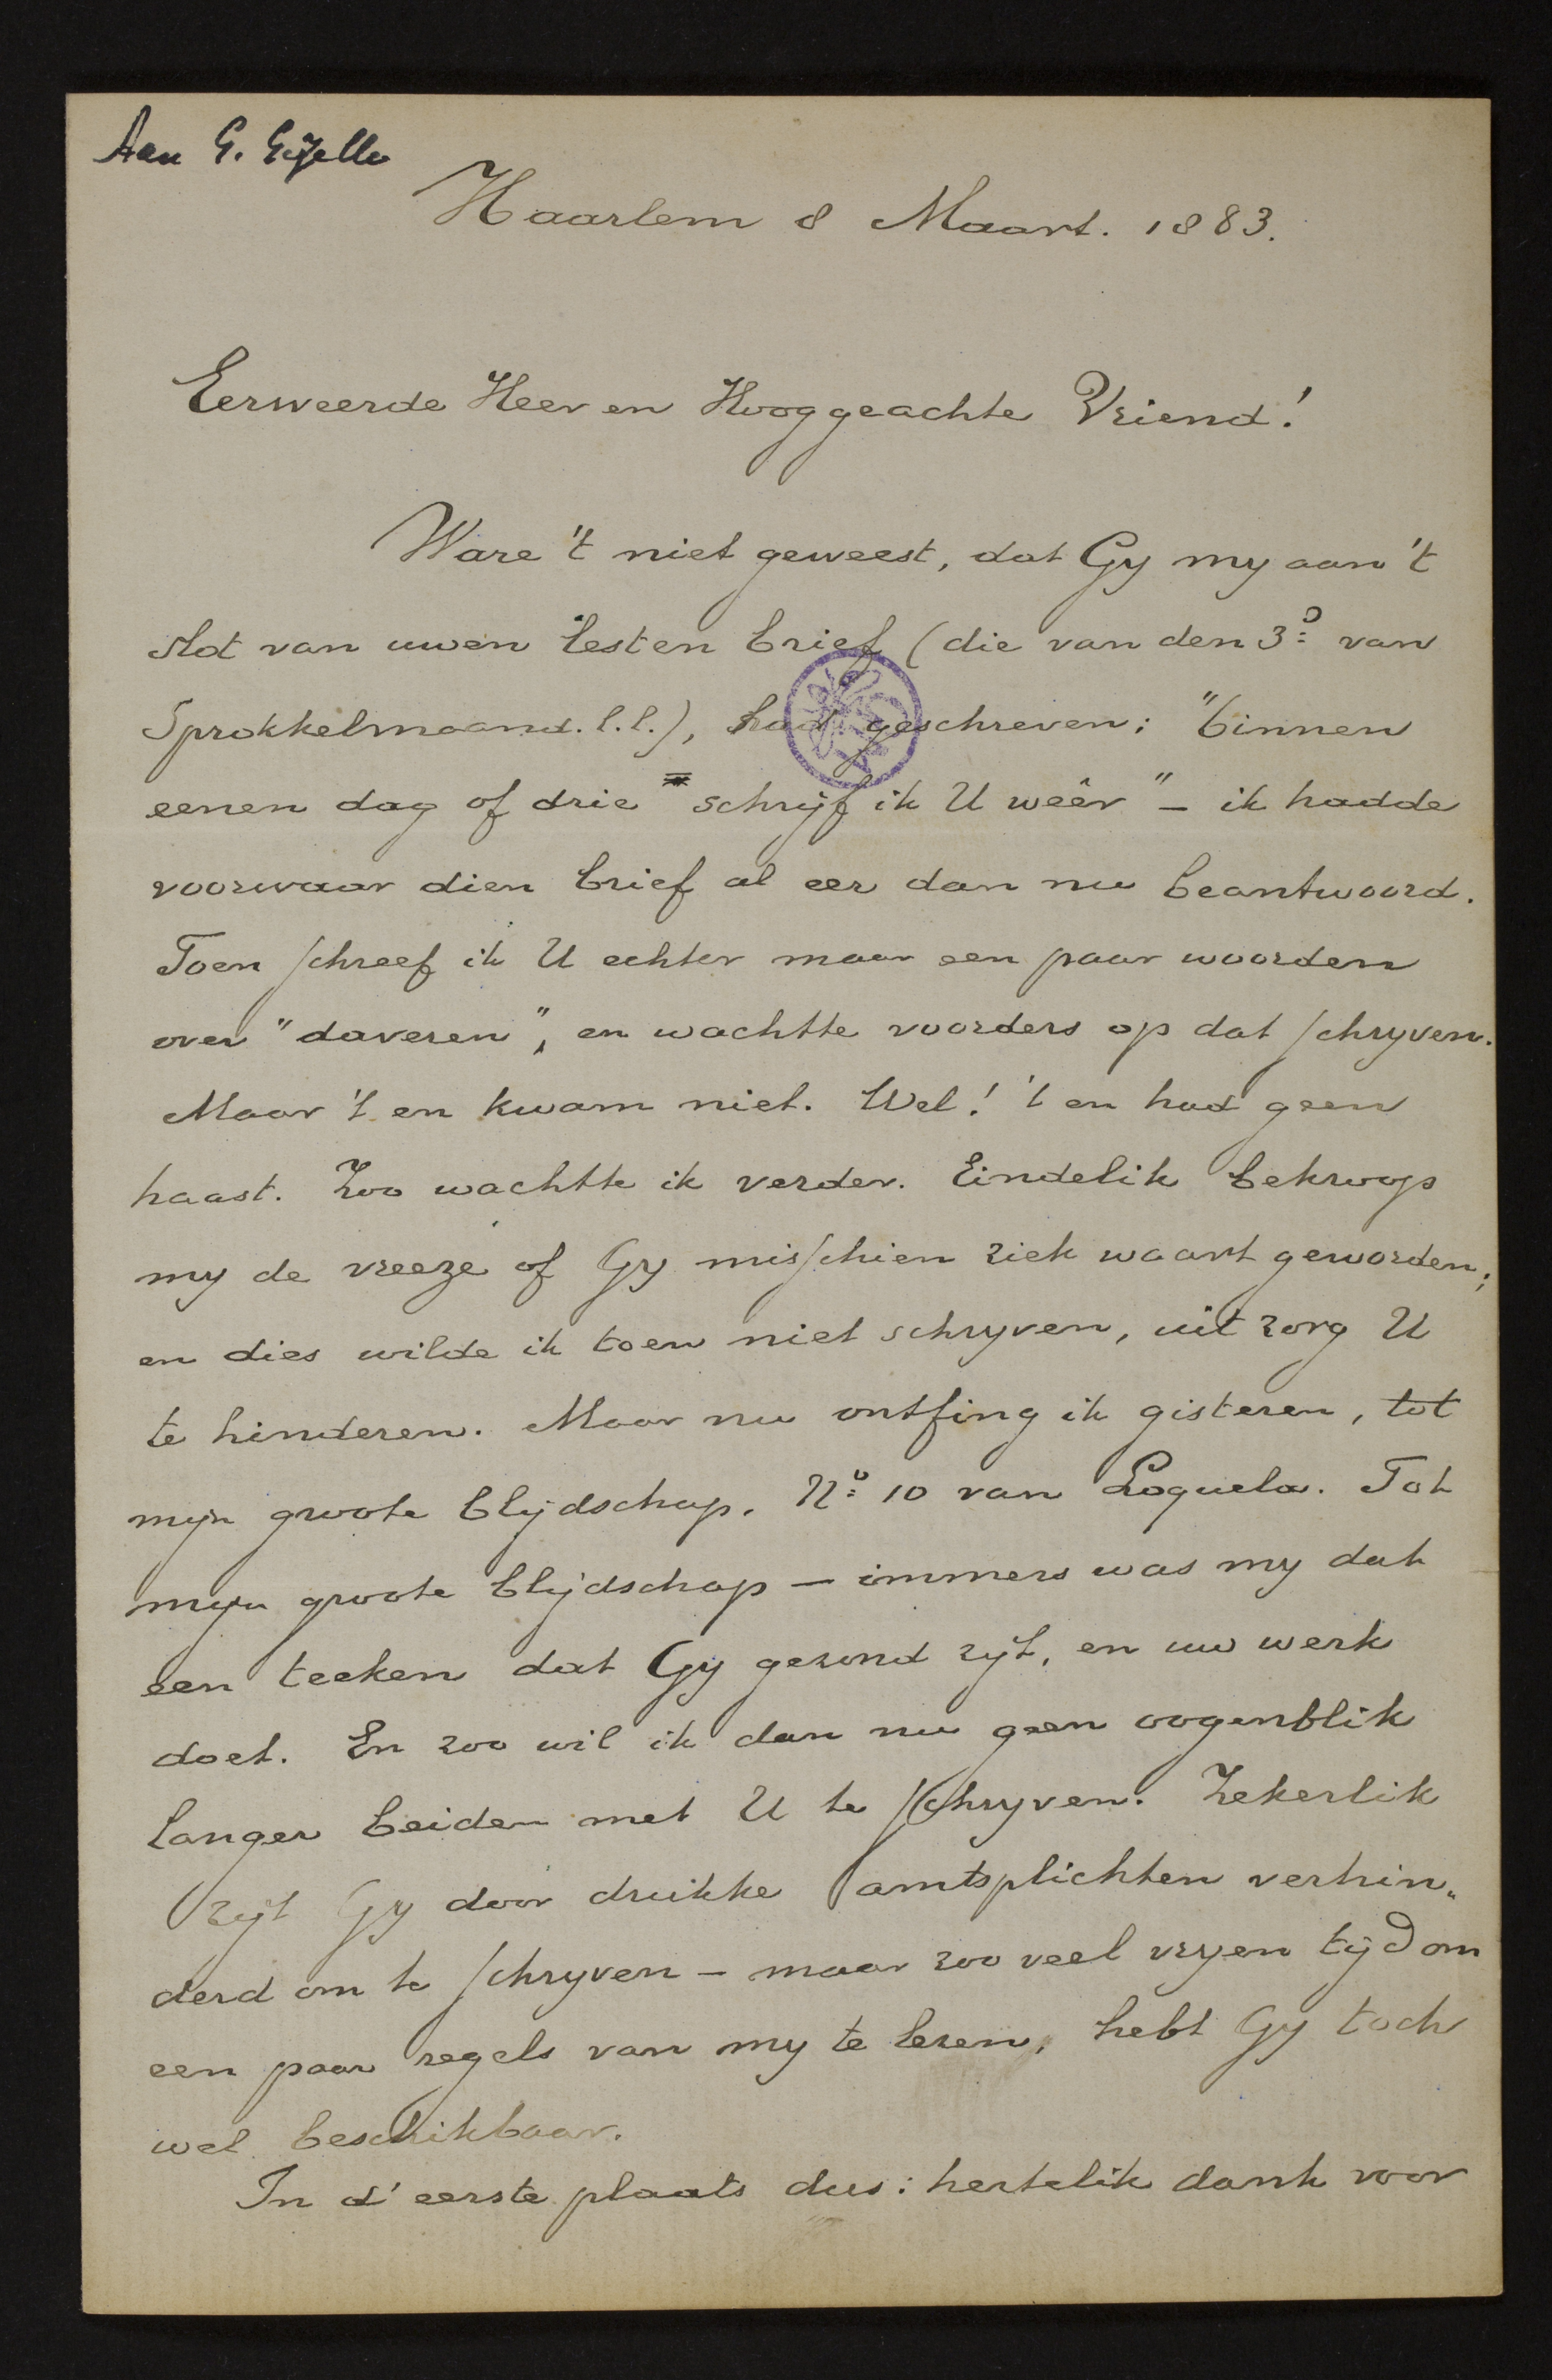 Aan G. Gezelle
Haarlem 8 Maart. 1883.
Eerweerde Heer en Hooggeachte Vriend!
Ware 't niet geweest, dat Gy my aan 't
slot van uwen lesten brief (die van den 3n van
Sprokkelmaand. l.l.), had geschreven: "binnen
eenen dag of drie schrijf ik U weêr" – ik hadde
voorwaar dien brief al eer dan nu beantwoord.
Toen schreef ik U echter maar een paar woorden
over "daveren", en wachtte voorders op dat schryven.
Maar 't en kwam niet. Wel! 't en had geen
haast. Zoo wachtte ik verder. Eindelik bekroop
my de vreeze of Gy misschien ziek waart geworden;
en dies wilde ik toen niet schryven, uit zorg U
te hinderen. Maar nu ontfing ik gisteren, tot
mijn groote blijdschap, No 10 van Loquela. Tot
mijn groote blijdschap – immers was my dat
een teeken dat Gy gezond zijt, en uw werk
doet. En zoo wil ik dan nu geen oogenblik
langer beiden met U te schryven. Zekerlik
zijt Gy door drukke amtsplichten verhin„
derd om te schryven – maar zoo veel vryen tijd om
een paar regels van my te lezen, hebt Gy toch
wel beschikbaar.
In d' eerste plaats dus: hertelik dank voor